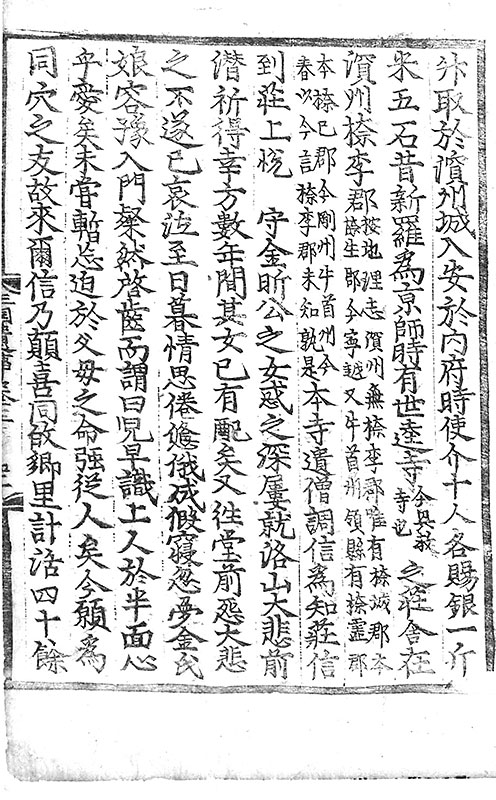 廾取於溟州城入安於內府時使介十人各賜銀一斤
米五石昔新羅爲京師時有世逵寺今興敎寺也之莊舍在
溟州捺李郡按地理志溟州無捺李郡唯有捺城郡本捺生郡今寧越又牛首州領縣有捺靈郡
本捺已郡今剛州牛首州今春州今言捺李郡未知孰是本寺遣僧調信爲知莊信
到莊上悅 守金昕公之女惑之深屢就洛山大悲前
潛祈得幸方數年間其女已有配矣又往堂前怨大悲
之不遂已哀泣至日暮情思倦憊俄成假寢忽夢金氏
娘容豫入門粲然啓齒而謂曰兒早識上人於半面心
乎愛矣未嘗暫忘迫於父母之命強從人矣今願爲
同穴之友故來爾信乃顛喜同皈鄉里計活四十餘